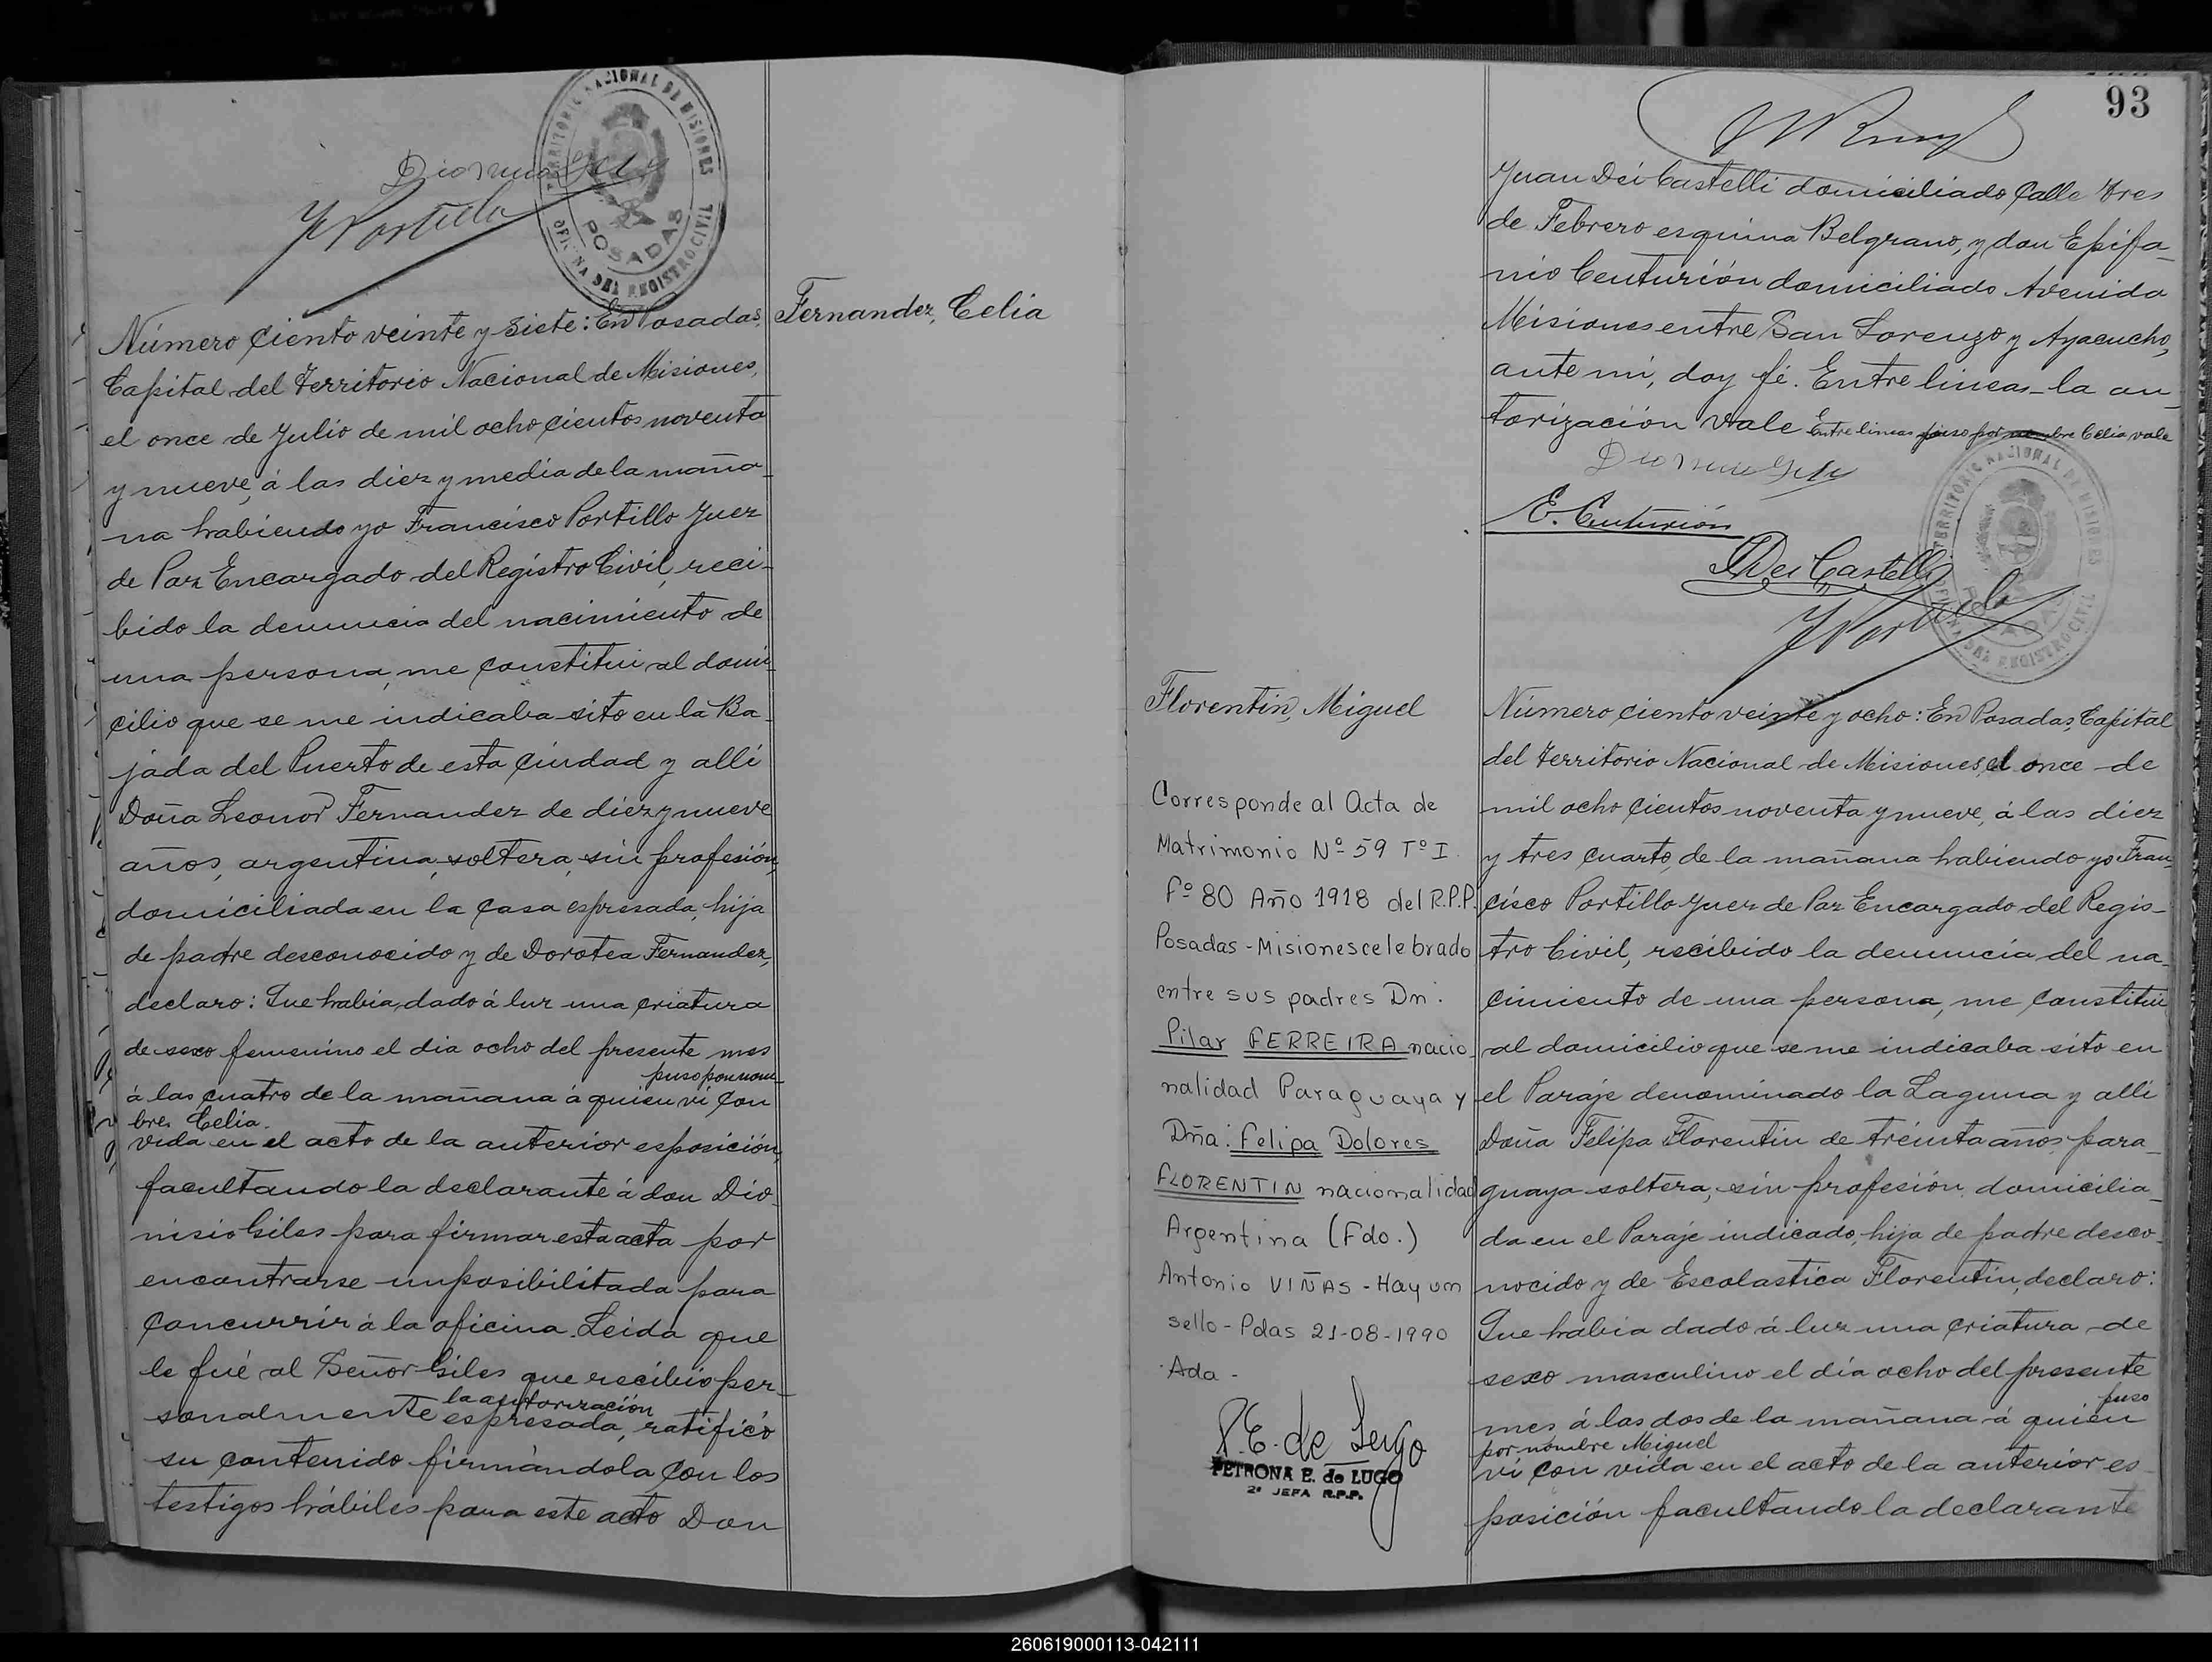 TERRITORIO NACIONAL DE MISIONES
POSADAS
OFICINA DEL REGISTRO CIVIL
F Portillo
Número ciento veinte y siete: En Posadas,
Capital del Territorio Nacional de Misiones,
el once de Julio de mil ocho cientos noventa
y nueve, á las diez y media de la maña_
na habiendo yo Francisco Portillo Juez
de Paz Encargado del Registro Civil, reci-
bido la denuncia del nacimiento de
una persona, me constitui al domi_
cilio que se me indicaba sito en la Ba_
jada del Puerto de esta ciudad y alli
Doña Leonor Fernandez de diez y nueve
años, argentina, soltera, sin profesión,
domiciliada en la casa espresada, hija
de padre desconocido y de Dorotea Fernandez,
declaro: Que habia dado á luz una criatura
de sexo femenino el dia ocho del presente mes
puso por nom_
á las cuatro de la mañana á quien vi con
bre Celia.
vida en el acto de la anterior esposición,
facultando la declarante á don Dio_
nisio Giles para firmar esta acta por
encontrarse imposibilitada para
concurrir á la oficina. Leida que
le fué al Señor Giles que recibió per_
la autorización
sonalmente espresada, ratificó
su contenido firmándola con los
testigos hábiles para este acto Don
Fernandez, Celia
93
Juan Dei Castelli domiciliado calle Tres
de Febrero esquina Belgrano, y don Epifa_
nio Centurión domiciliado Avenida
Misiones entre San Lorenzo y Ayacucho,
ante mi, doy fé. Entre lineas-la au_
torización Vale Entre lineas puso por nombre Celia vale
E. Centurión
J Dei Castelli
F Portillo
TERRITORIO NACIONAL DE MISIONES
OFICINA DEL REGISTRO CIVIL
Florentin, Miguel
Corresponde al Acta de
Matrimonio Nº 59 Tº I
Fº 80 Año 1918 del R.P.P.
Posadas - Misiones celebrado
entre sus padres Dn.
Pilar FERREIRA nacio_
nalidad Paraguaya y
Dña: Felipa Dolores
FLORENTIN nacionalidad
Argentina (Fdo.)
Antonio VIÑAS - Hay un
sello - Pdas 21-08-1990
Ada -
P.E. de Lugo
PETRONA E. de LUGO
2ª JEFA R.P.P.
Número ciento veinte y ocho: En Posadas, Capital
del Territorio Nacional de Misiones, el once de
mil ocho cientos noventa y nueve, á las diez
y tres cuarto, de la mañana habiendo yo Fran_
cisco Portillo Juez de Paz Encargado del Regis_
tro Civil, recibido la denuncia del na_
cimiento de una persona, me constitui
al domicilio que se me indicaba sito en
el Paraje denominado la Laguna y alli
Doña Felipa Florentin de treinta años, para_
guaya soltera, sin profesión, domicilia_
da en el Paraje indicado, hija de padre desco_
nocido y de Escolastica Florentin, declaro:
Que habia dado á luz una criatura de
sexo masculino el día ocho del presente
puso
mes á las dos de la mañana á quien
por nombre Miguel
vi con vida en el acto de la anterior es_
posición facultando la declarante
260619000113-042111